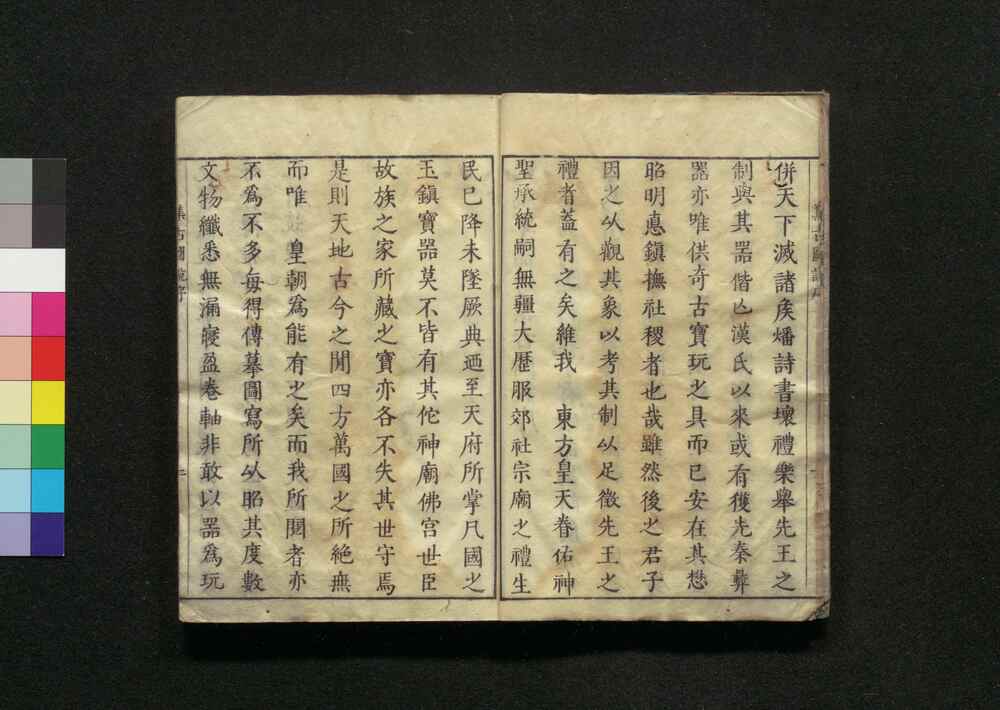 併天下滅諸矦燔詩書壞禮樂舉先王之
制與其器偕亡漢氏以來或有獲先秦彝
器亦唯供奇古寶玩之具而已安在其懋
昭明悳鎮撫社稷者也哉雖然後之君子
因之以觀其象以考其制以足徵先王之
禮者蓋有之矣維我 東方皇天眷佑神
聖承統嗣無疆大歷服郊社宗廟之禮生
民已降未墜厥典迺至天府所掌凡國之
玉鎮寶器莫不皆有其佗神廟佛宮世臣
故族之家所藏之寶亦各不失其世守焉
是則天地古今之閒四方萬國之所絕無
而唯 皇朝為能有之矣而我所聞者亦
不為不多每得傳摹圖寫所以昭其度數
文物纖悉無漏寖盈卷軸非敢以器為玩
集古圖說序